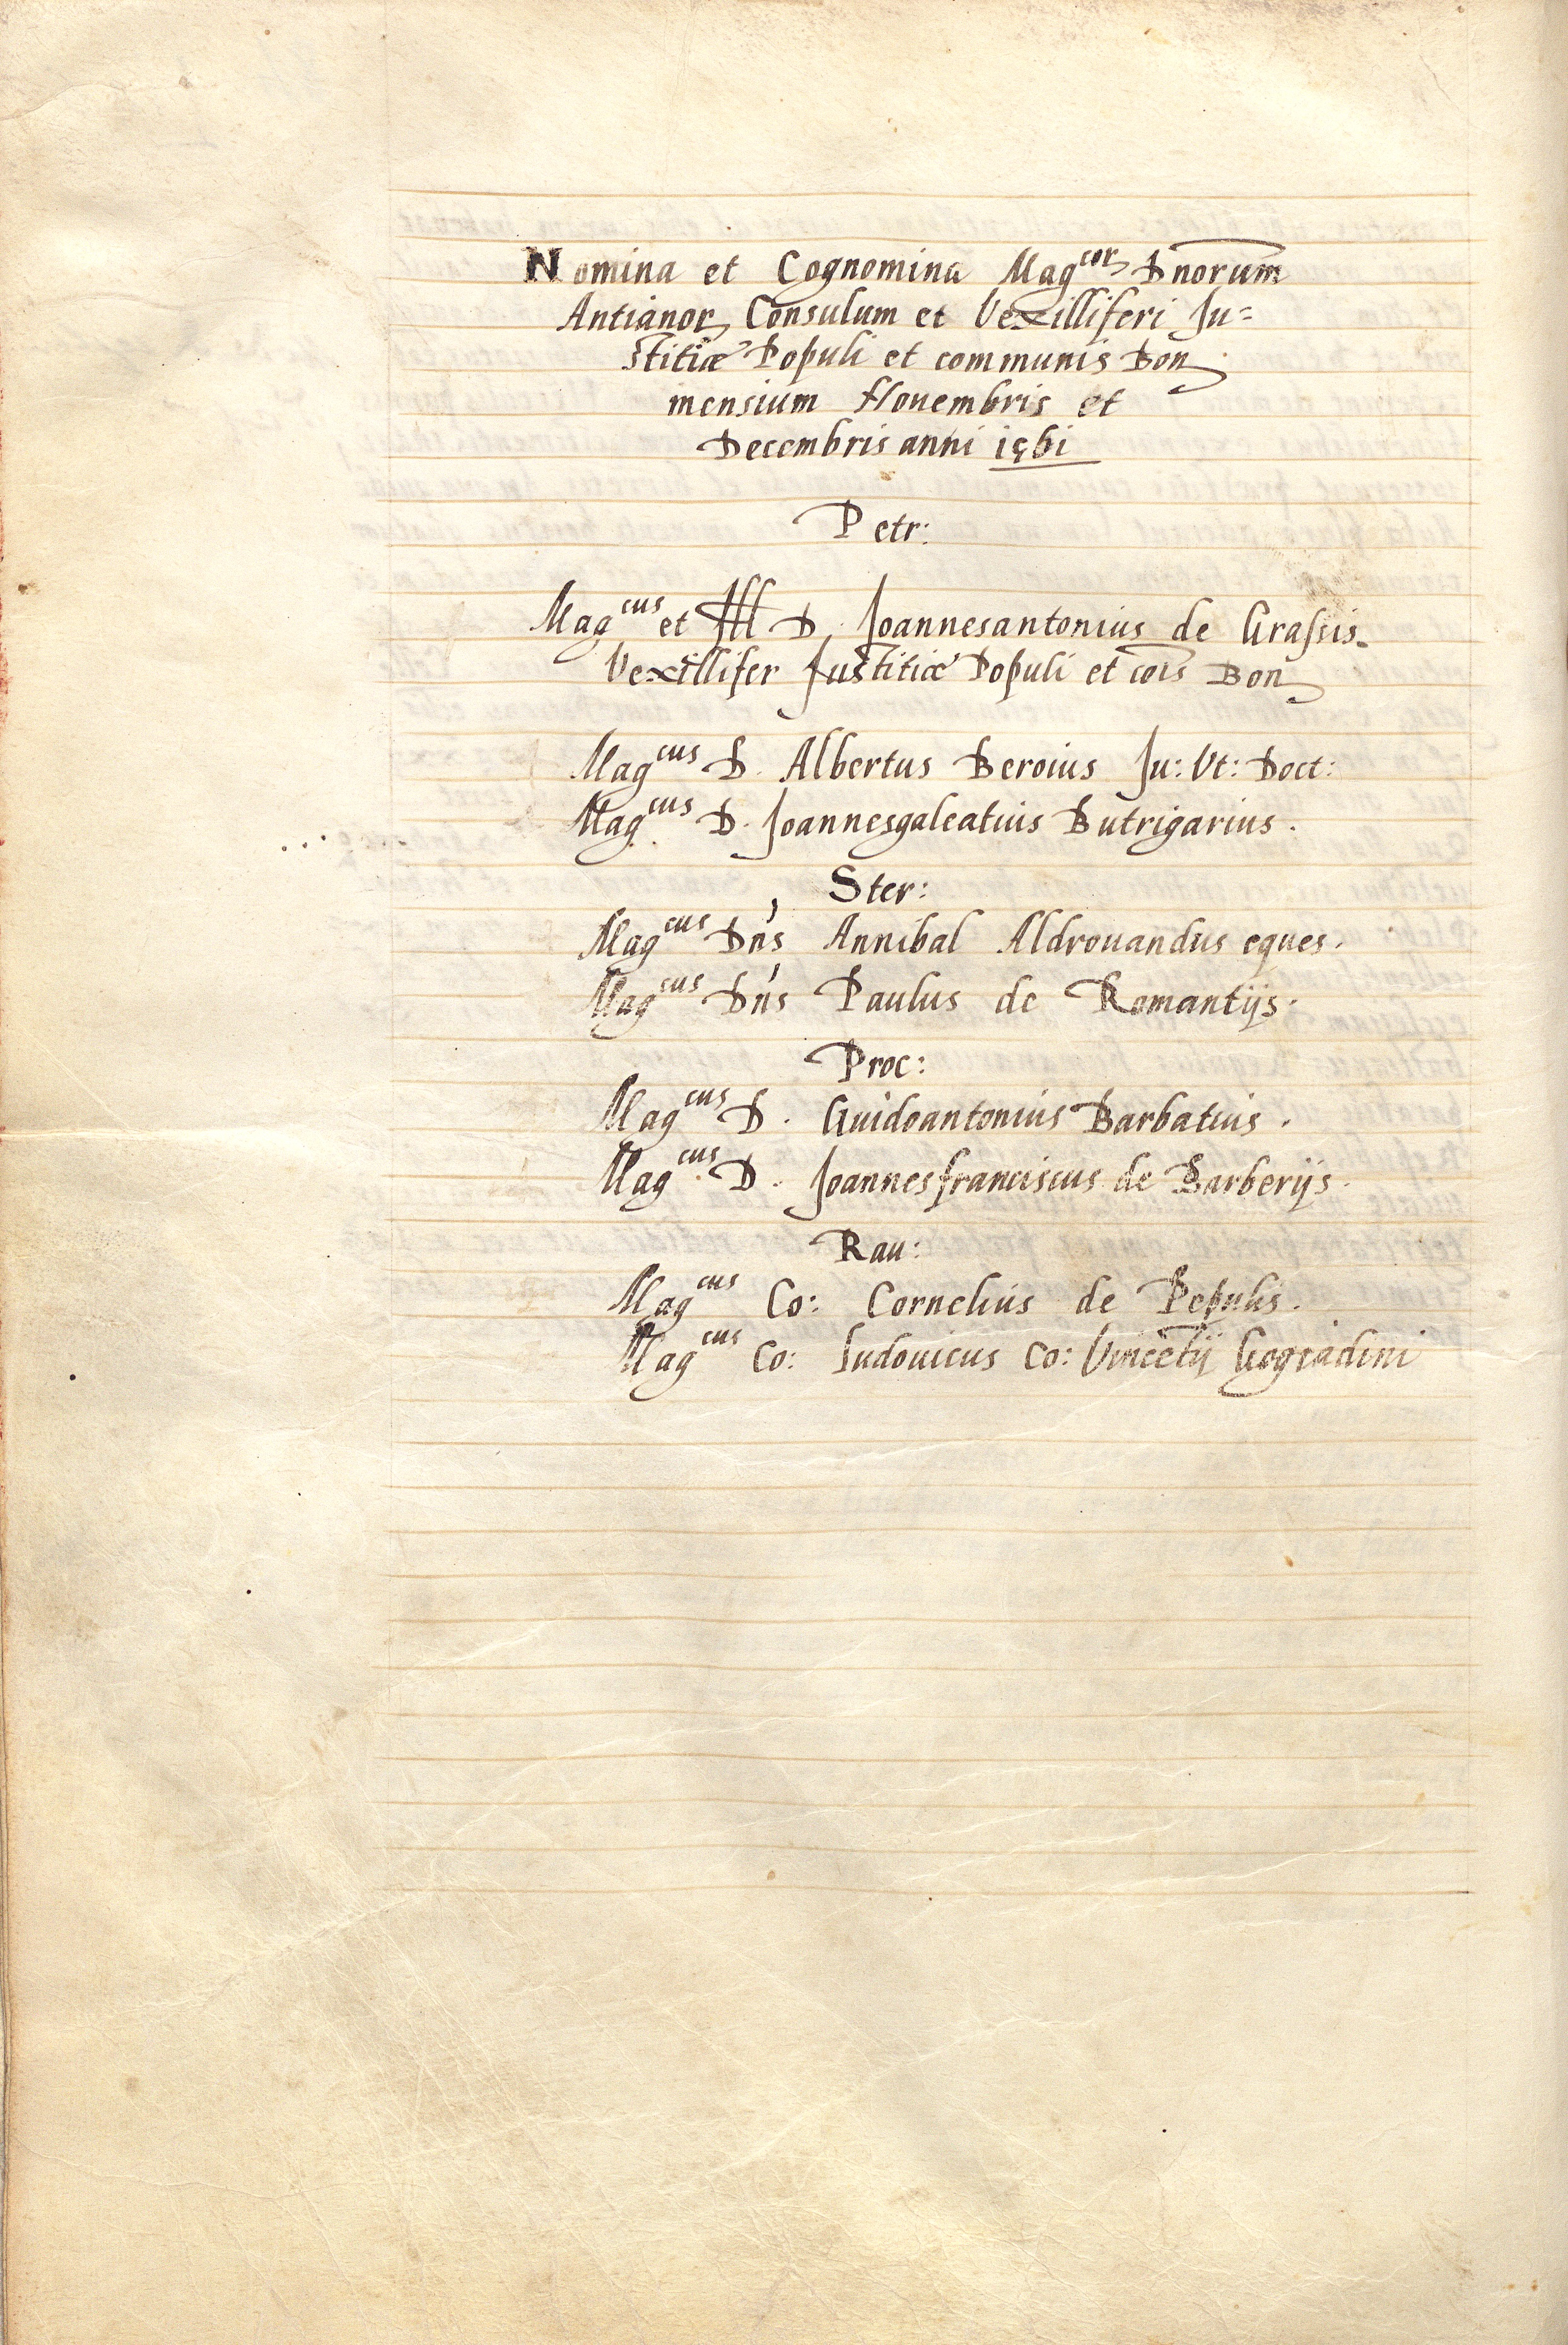 Nomina et Cognomina Mag^cor Dnorum
Antianor Consulum et Vexilliferi Ju=
stitiæ Populi et communis Bon
mensium Nouembris et
Decembris anni 1561
Petr:
Mag^cus et Ill D. Joannesantonius de Grassis.
Vexillifer Justitiæ Populi et cõis Bon
Mag^cus D. Albertus Beroius Ju: Vt: Doct:
Mag^cus D. Joannesgaleatius Butrigarius.
Ster:
Mag^cus Dns Annibal Aldrouandus eques.
Mag^cus Dns Paulus de Romantijs.
Proc:
Mag^cus D. Guidoantonius Barbatius.
Mag^cus D. Joannesfranciscus de Barberijs.
Rau:
Mag^cus Co: Cornelius de Pepulis.
Mag^cus Co: Ludouicus Co: Vincẽtij Gogiadini